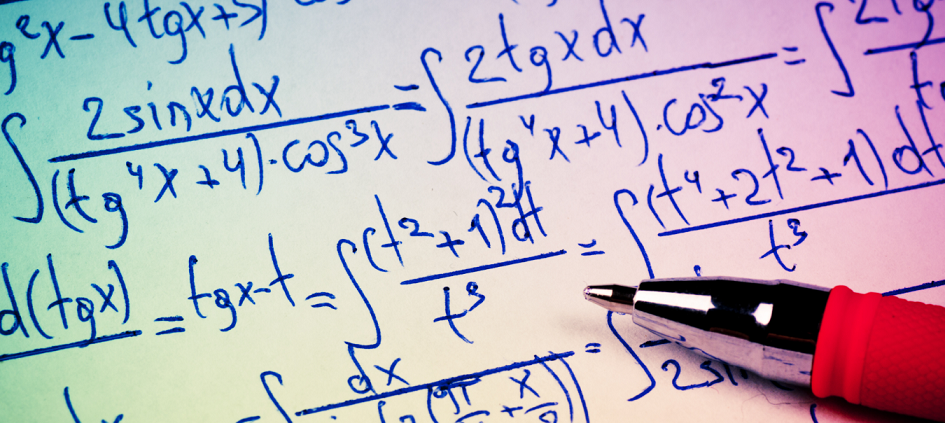 g²x-4tgx+5)
∫ 2sinxdx / (tg⁴x+4)·cos³x = ∫ 2tgxdx / (tg⁴x+4)·cos²x = ∫
d(tgx) = tgx-t = ∫ (t²+1)²dt / t³ = ∫ (t⁴+2t²+1)dt / t³
= ∫ dx = ∫